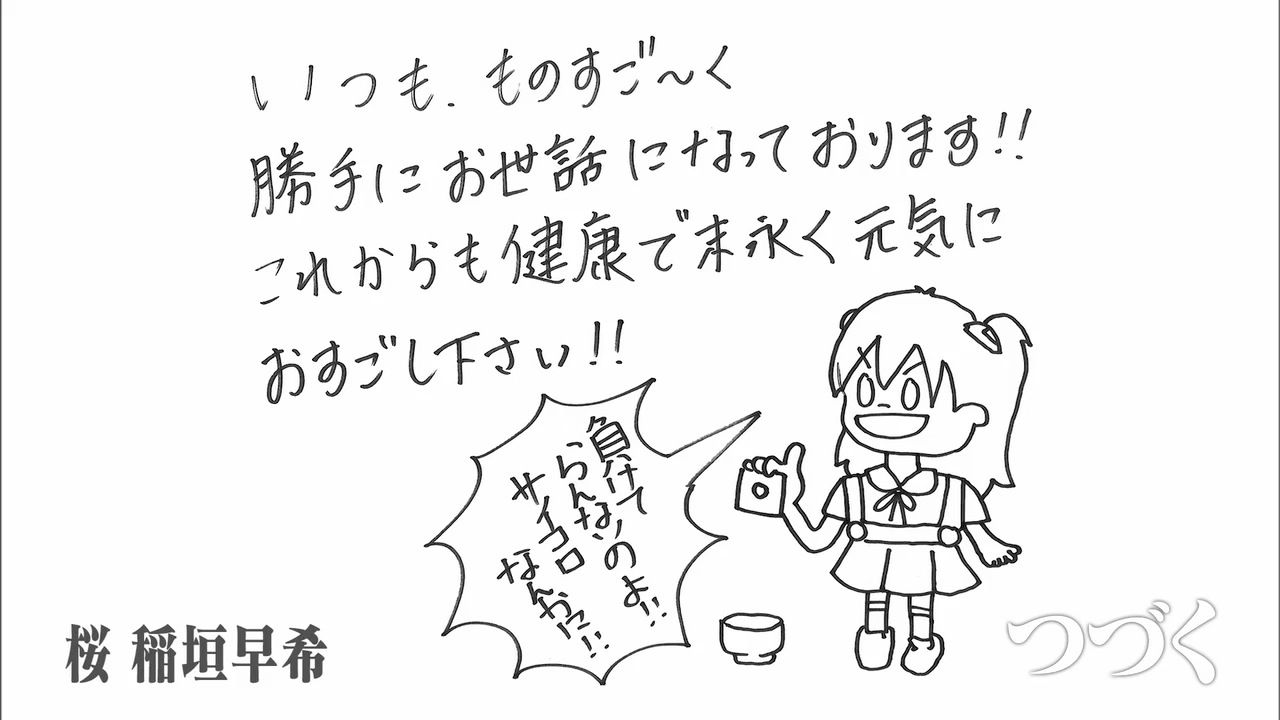 いつも、ものすご〜く
勝手にお世話になっております!!
これからも健康で末永く元気に
おすごし下さい!!
負けて
らんないのよ!!
サイコロ
なんかに!!
桜 稲垣早希
つづく